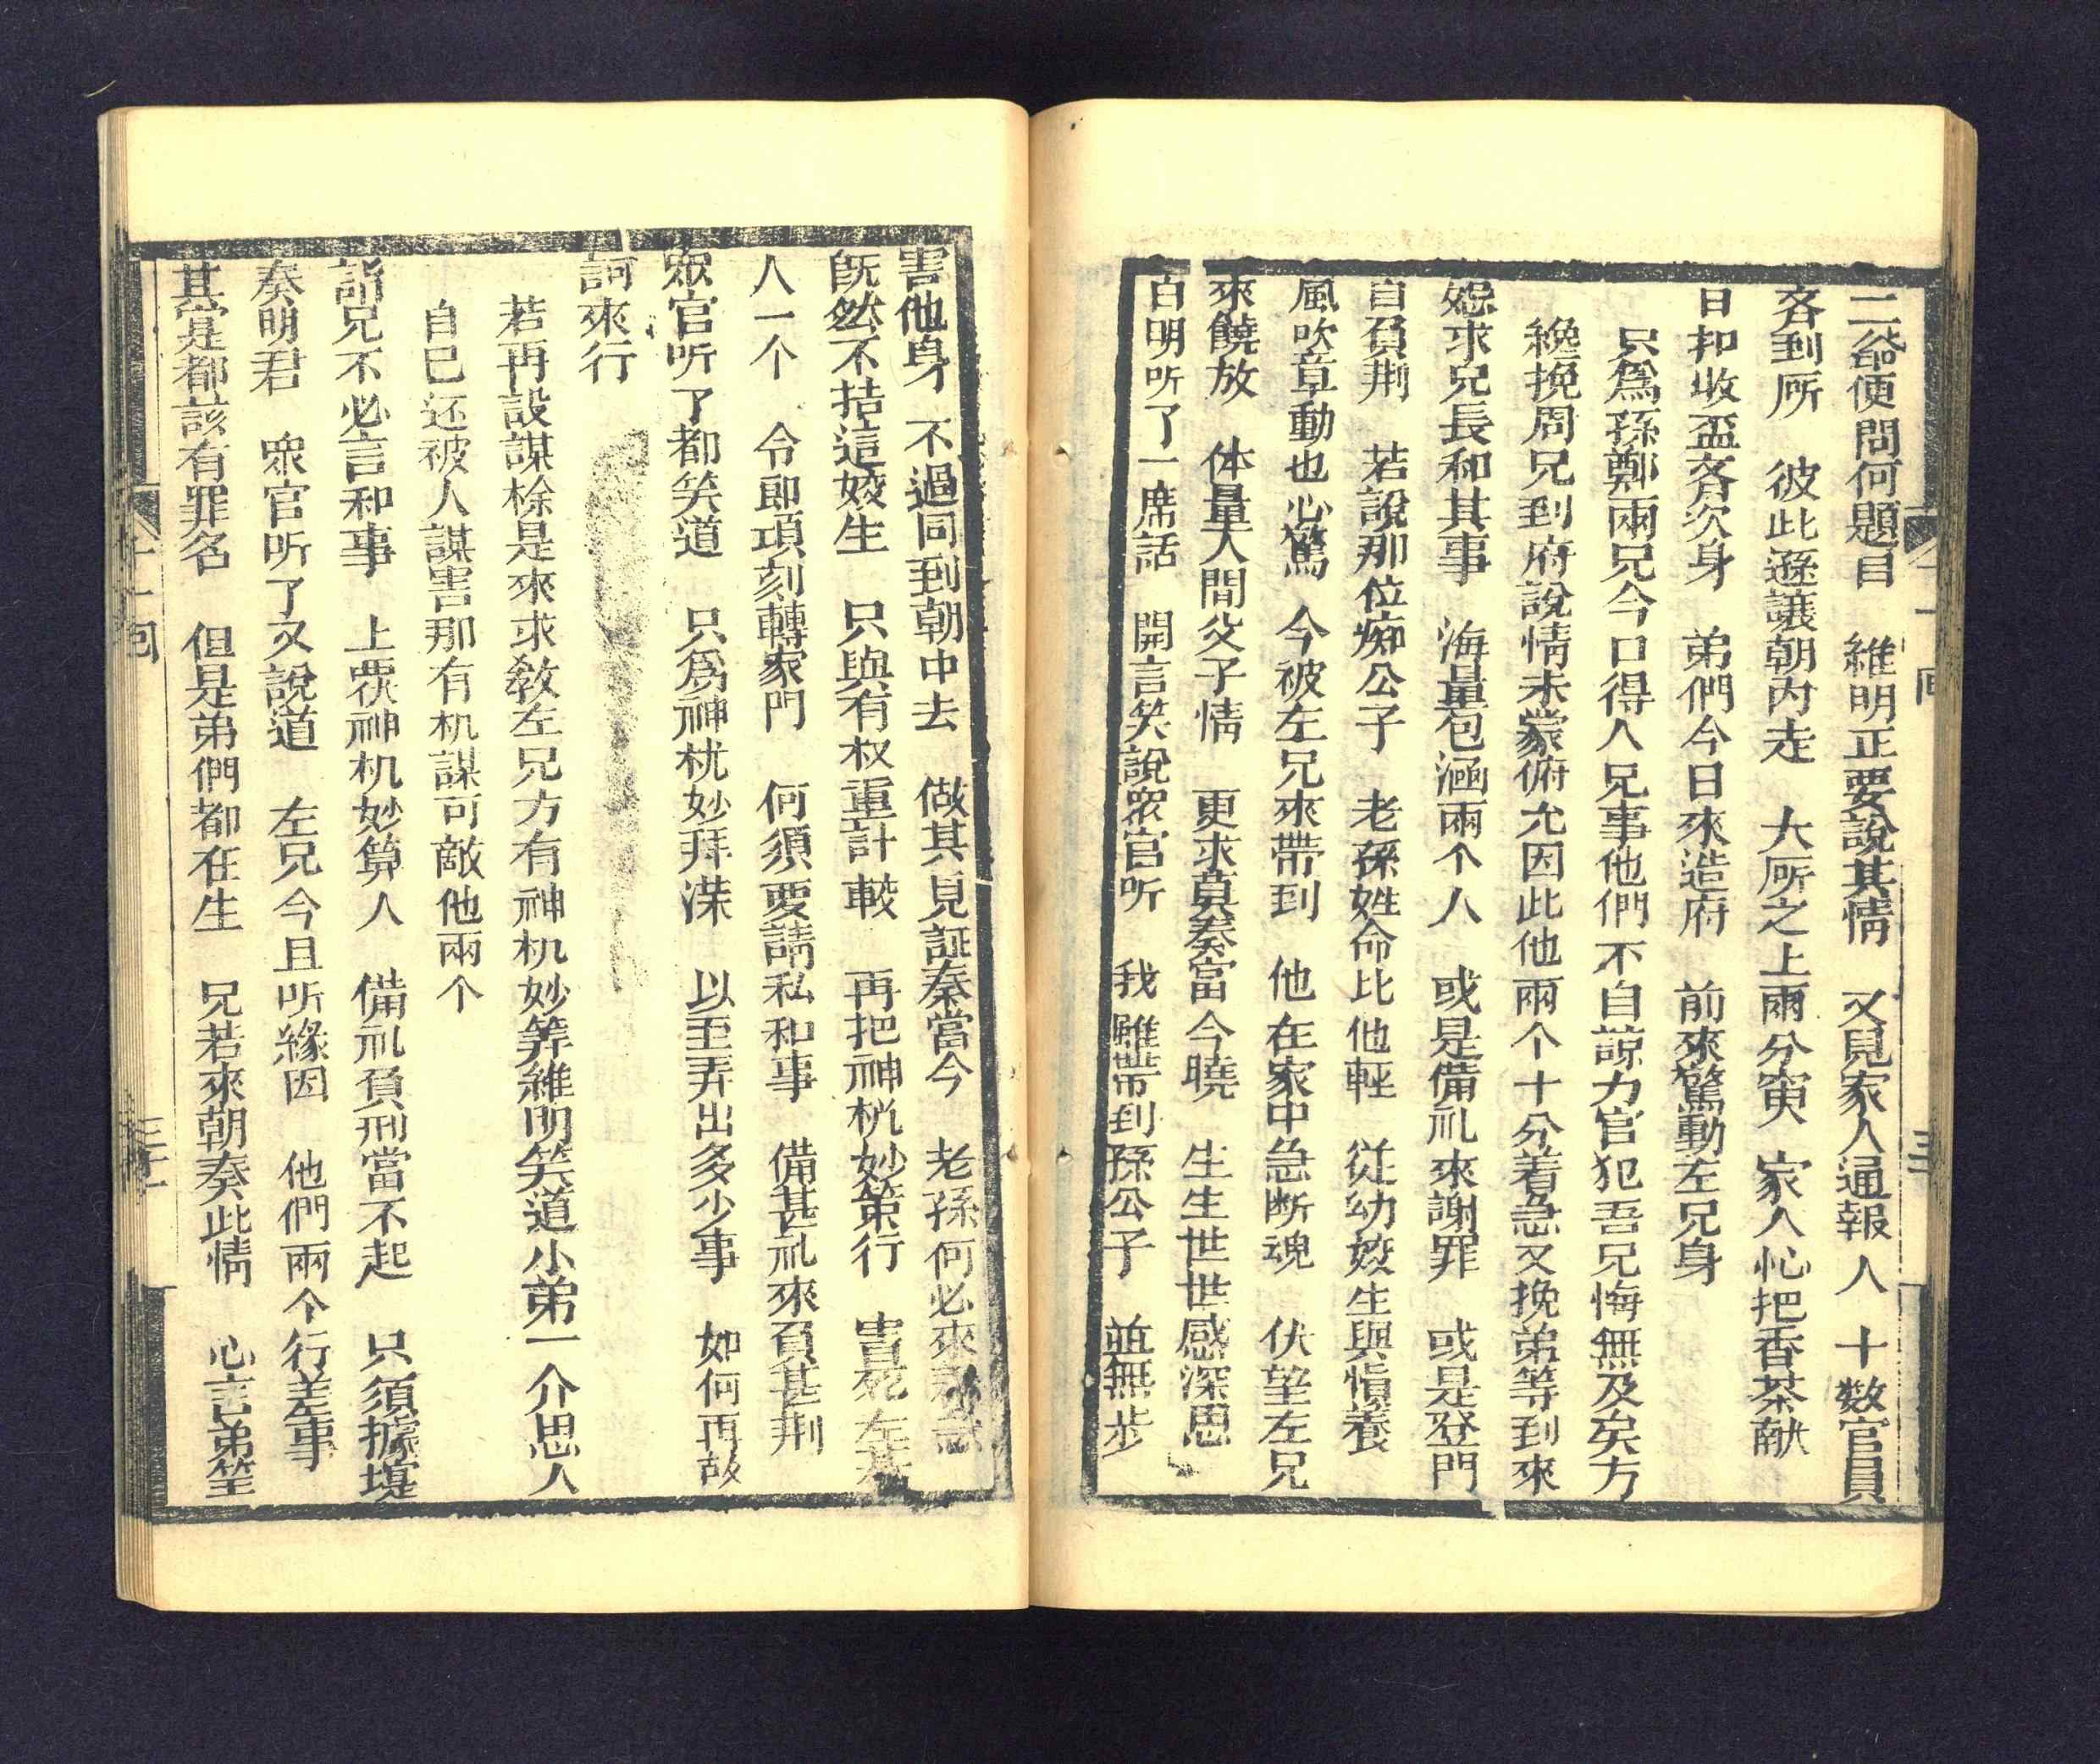 二爺便問何題目　維明正要說其情　又見家人通報人　十数官員
齐到所　彼此遜讓朝内走　大所之上兩分寅　家人忙把香茶献
日扣收盃齐次身　弟們今日來造府　前來驚動左兄身
只爲孫鄭兩兄今口得人兄事他們不自諒力官犯吾兄悔無及矣方
纔挽周兄到府說情未蒙俯允因此他兩个十分着急又挽弟等到來
怨求兄長和其事　海量包涵兩个人　或是備礼來謝罪　或是登門
自負荆　若說那位痴公子　老孫姓命比他輕　從幼姣生與慣養
風吹草動也心驚　今被左兄來帶到　他在家中急断魂　伏望左兄
來饒放　体量人間父子情　更求莫奏當今曉　生生世世感深恩
自明听了一席話　開言笑說衆官听　我雖帶到孫公子　並無步
害他身　不過同到朝中去　做其見証奏當今　老孫何必來
旣然不拮這姣生　只與有权重計較　再把神机妙筞行　害死左
人一个　令即項刻轉家門　何須要請私和事　備甚礼來負甚荆
衆官听了都笑道　只爲神机妙拜溁　以至弄出多少事　如何再故
訶來行
若再設謀除是來求敎左兄方有神机妙筭維明笑道小弟一介思人
自已还被人謀害那有机謀可敵他兩个
諸兄不必言和事　上覆神机妙算人　備礼負刑當不起　只須據寔
奏明君　衆官听了又說道　左兄今且听緣因　他們兩个行差事
其寔是都該有罪名　但是弟們都在生　兄若來朝奏此情　心言弟筀
十一回
三十